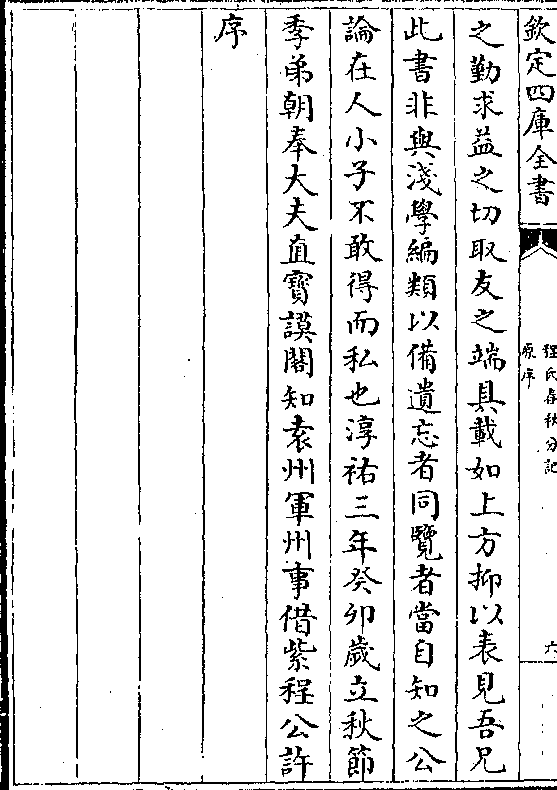 欽定四庫全書
程氏春秋分記
原序
六
之勤求益之切取友之端具載如上方抑以表見吾兄
此書非與淺學編類以備遺忘者同覽者當自知之公
論在人小子不敢得而私也淳祐三年癸卯歲立秋節
季弟朝奉大夫直寶謨閣知袁州軍州事借紫程公許
序